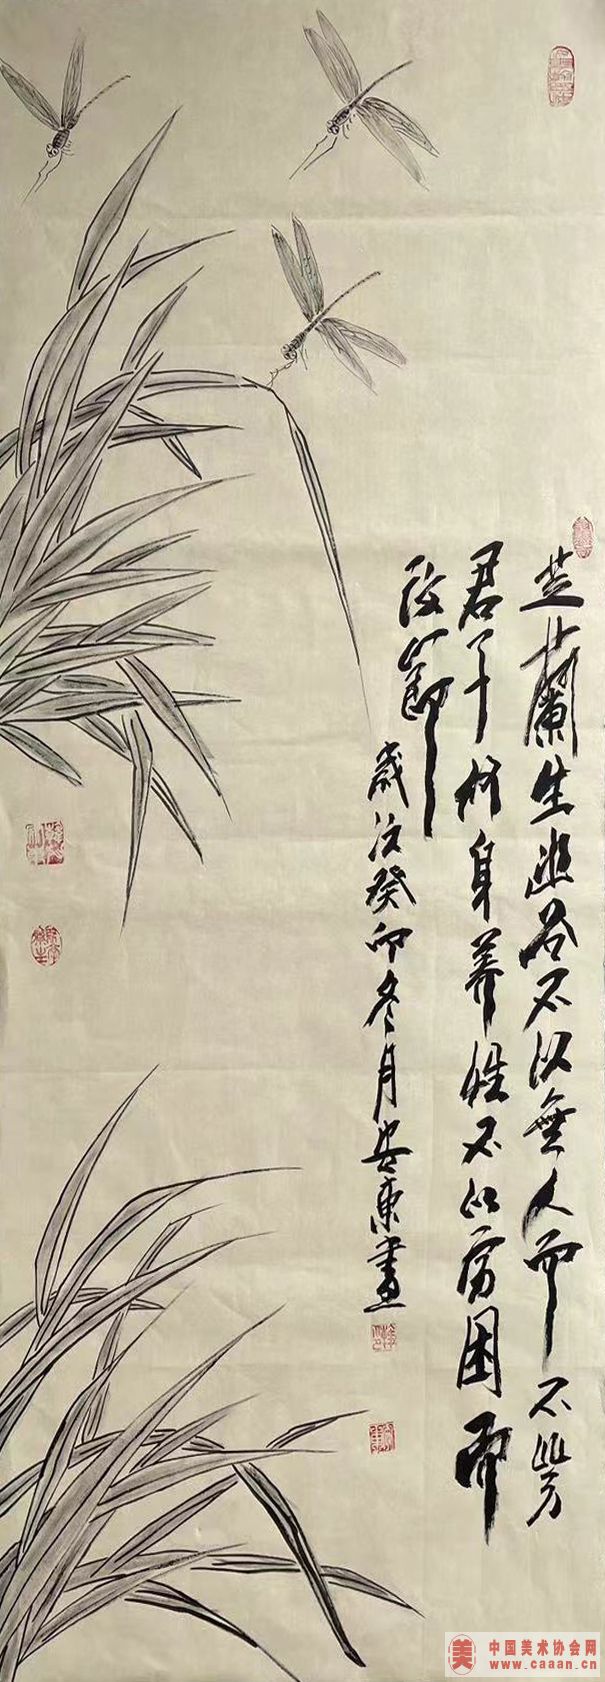 芝蘭生幽谷不以無人而不芳
君子修身养性不以穷困而
改節
歲次癸卯冬月安東畫
美
中国美术协会网
www.caaan.cn